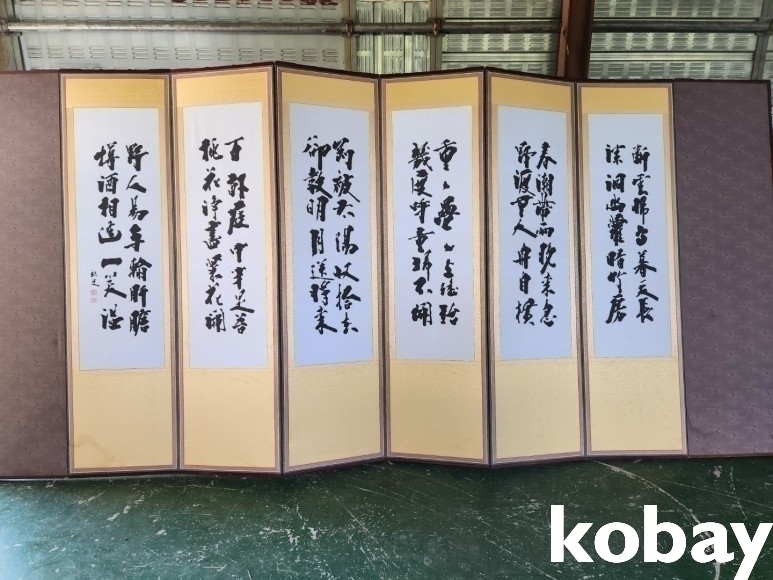 斷雲歸鳥暮天長
深洞幽蘿暗竹房
春潮帶雨晚來急
野渡无人舟自橫
重〻疊〻上瑤臺
幾度呼童掃不開
剛被太陽收拾去
却教明月送將來
百畝庭中半是苔
桃花淨盡菜花開
野人易與輸肝膽
樽酒相逢一笑溫
kobay